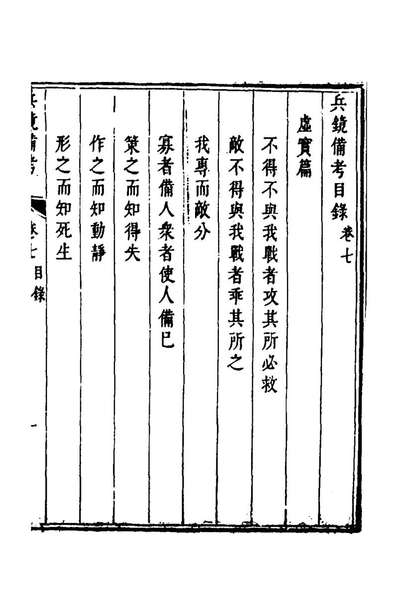 兵鏡備考目錄 卷七
虛實篇
不得不與我戰者攻其所必救
敵不得與我戰者乖其所之
我專而敵分
寡者備人衆者使人備已
策之而知得失
作之而知動靜
形之而知死生
兵鏡備考 卷七 目錄 一